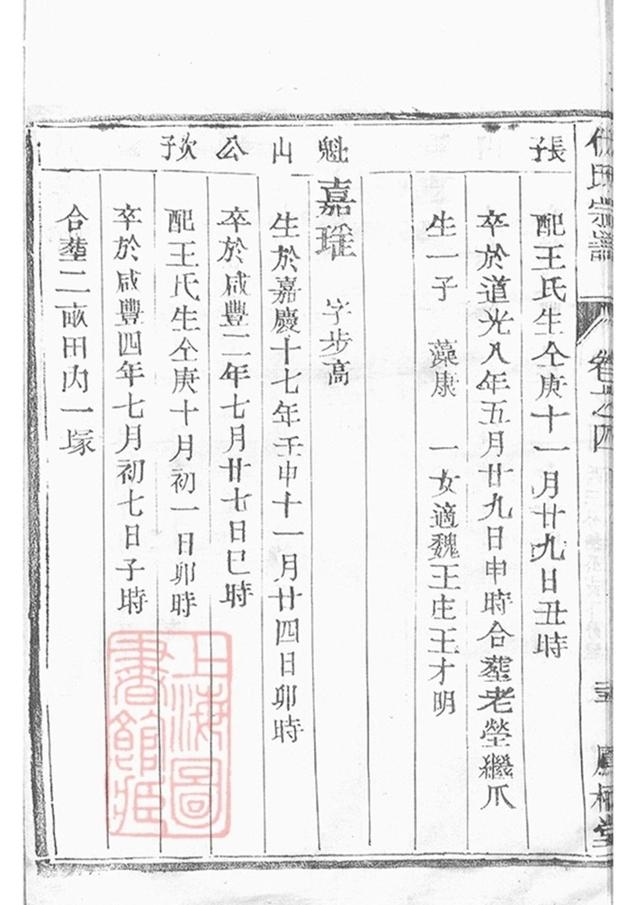 氏宗譜 卷之四 鳳栖堂
長子
配王氏生仝庚十一月廿九日丑時
卒於道光八年五月廿九日申時合塟老塋繼爪
生一子 藻康 一女適魏王庄王才明
魁山公次子
嘉琟 字步高
生於嘉慶十七年壬申十一月廿四日卯時
卒於咸豐二年七月廿七日巳時
配王氏生仝庚十月初一日卯時
卒於咸豐四年七月初七日子時
合塟二畝田内一塚
上海圖
書館藏